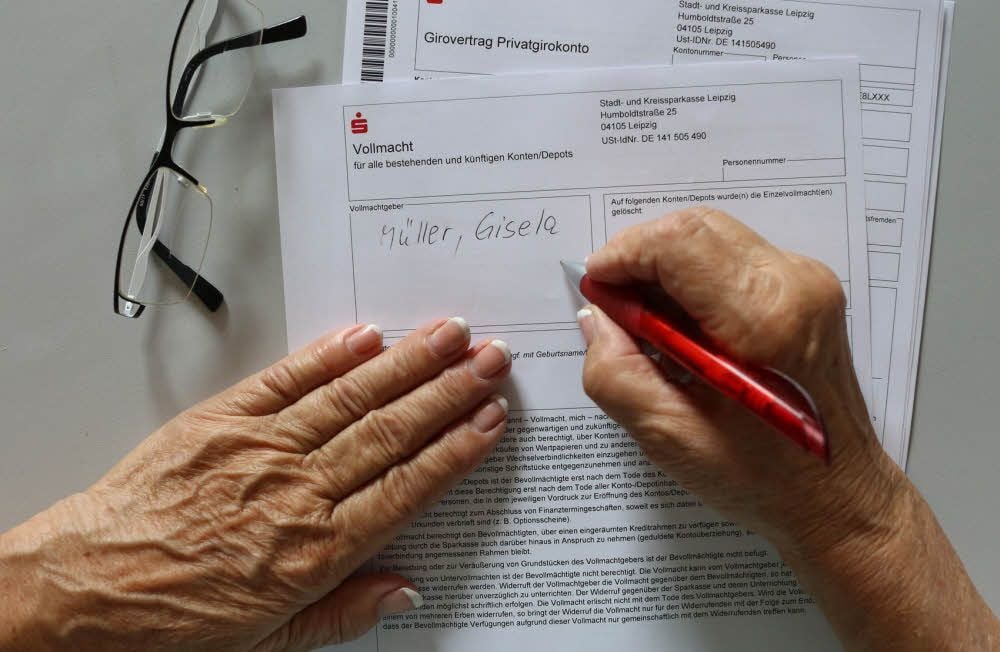 Girovertrag Privatgirokonto
Stadt- und Kreissparkasse Leipzig
Humboldtstraße 25
04105 Leipzig
Ust-IDNr. DE 141505490
Kontonummer
8LXXX
Vollmacht
für alle bestehenden und künftigen Konten/Depots
Stadt- und Kreissparkasse Leipzig
Humboldtstraße 25
04105 Leipzig
USt-IdNr. DE 141 505 490
Personennummer
Vollmachtgeber
Müller, Gisela
Auf folgenden Konten/Depots wurde(n) die Einzelvollmacht(en)
gelöscht.
mit Geburtsname/
– Vollmacht, mich – nach
der gegenwärtigen und zukünftige
auch berechtigt, über Konten
von Wertpapieren und zu
Wechselverbindlichkeiten einzugehen
Schriftstücke entgegenzunehmen und
ist der Bevollmächtigte erst nach dem Tode des
diese Berechtigung erst nach dem Tode aller
die in dem jeweiligen Vordruck zur Eröffnung des
berechtigt zum Abschluss von Finanztermingeschäften, soweit es sich dabei
Urkunden verbrieft sind (z. B. Optionsscheine).
berechtigt den Bevollmächtigten, über einen eingeräumten Kreditrahmen zu verfügen
durch die Sparkasse auch darüber hinaus in Anspruch zu nehmen (geduldete Kontoüberziehung),
angemessenen Rahmen bleibt.
Zur Bestellung oder zur Veräußerung von Grundstücken des Vollmachtgebers ist der Bevollmächtigte nicht befugt.
von Untervollmachten ist der Bevollmächtigte nicht berechtigt. Die Vollmacht kann vom Vollmachtgeber
widerrufen werden. Widerruft der Vollmachtgeber die Vollmacht gegenüber dem Bevollmächtigten, so hat
hierüber unverzüglich zu unterrichten. Der Widerruf gegenüber der Sparkasse und deren Unterrichtung
möglichst schriftlich erfolgen. Die Vollmacht erlischt nicht mit dem Tode des Vollmachtgebers. Wird die
einem von mehreren Erben widerrufen, so bringt der Widerruf die Vollmacht nur für den Widerrufenden mit der Folge zum
dass der Bevollmächtigte Verfügungen aufgrund dieser Vollmacht nur gemeinschaftlich mit dem Widerrufenden treffen kann.